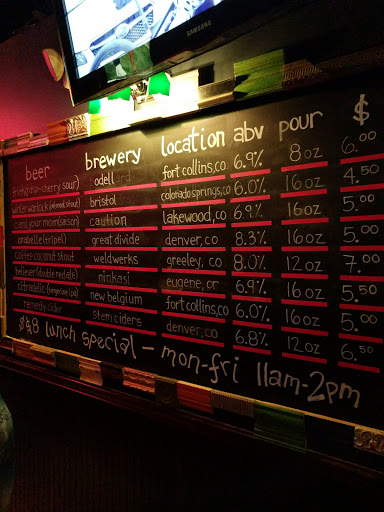 SAMSUNG
beer brewery location abv pour $
(cherry sour) odell fort collins,co 6.9% 8oz 6.00
winter warlock (oatmeal stout) bristol colorado springs,co 6.0% 16oz 4.50
card your mom (saison) caution lakewood,co 6.9% 16oz 5.00
orabelle (tripel) great divide denver,co 8.3% 16oz 5.00
coffee coconut stout weldwerks greeley, co 8.0% 12oz 7.00
believer (double red ale) ninkasi eugene, or 6.9% 16oz 5.00
citradelic (tangerine ipa) new belgium fort collins,co 6.0% 16oz 5.00
remedy cider stem ciders denver,co 6.8% 12oz 6.50
lunch special - mon-fri 11am-2pm